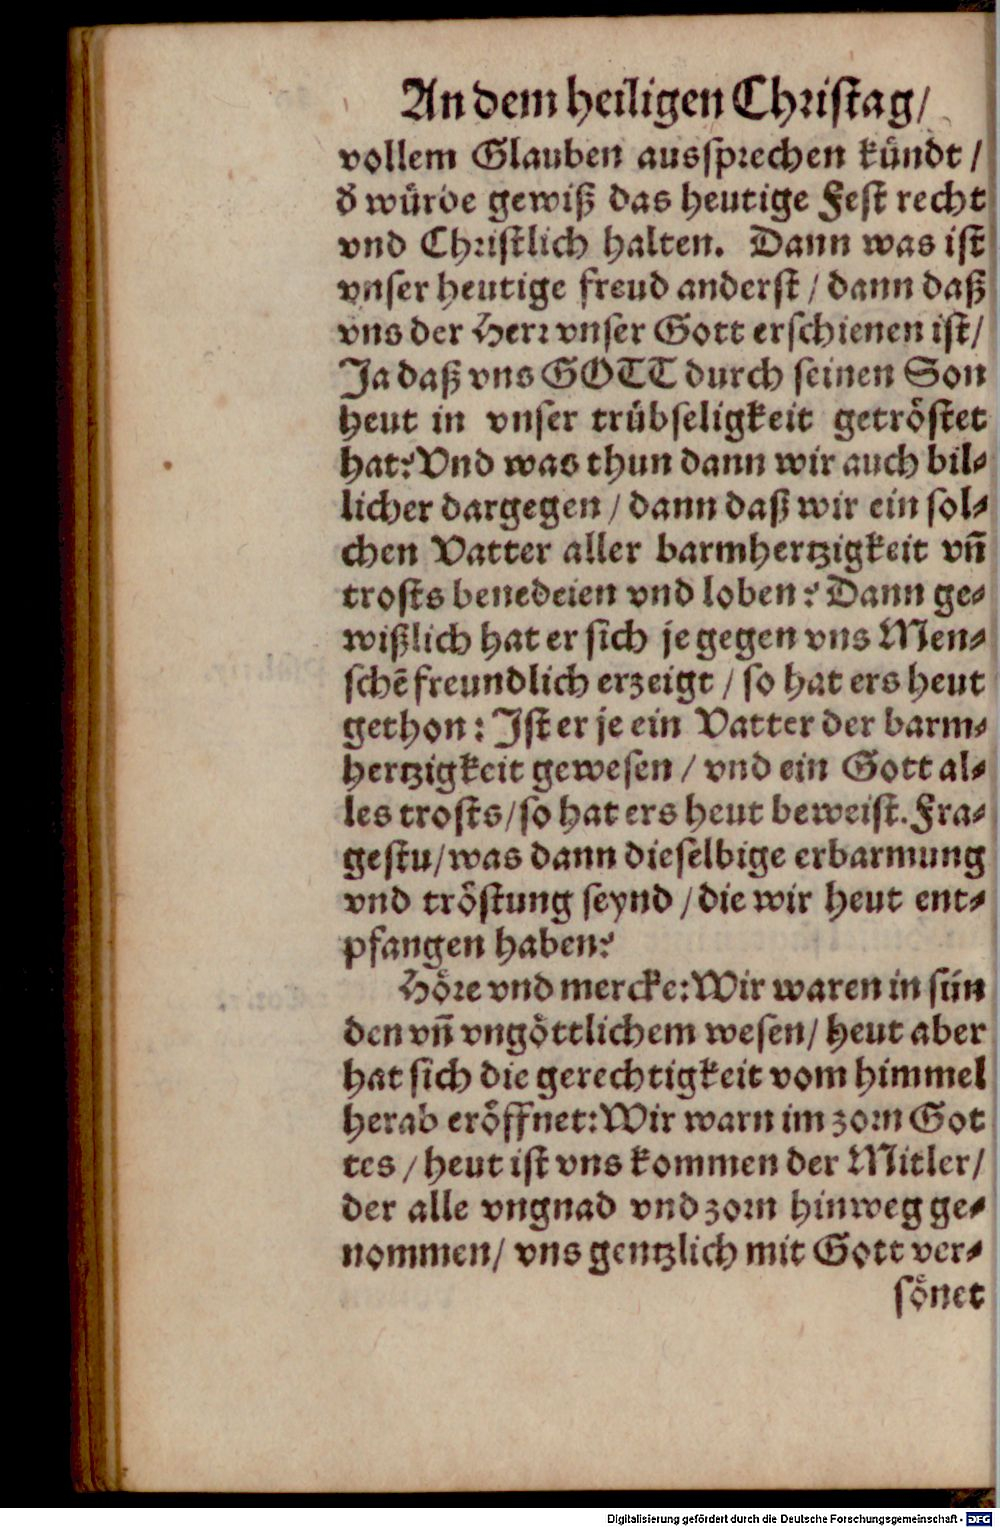 An dem heiligen Christag/
vollem Glauben aussprechen kündt /
d̄ würde gewiß das heutige Fest recht
vnd Christlich halten. Dann was ist
vnser heutige freud anderst / dann daß
vns der Herr vnser Gott erschienen ist/
Ja daß vns GOTT durch seinen Son
heut in vnser trübseligkeit getröstet
hat? Vnd was thun dann wir auch bil-
licher dargegen / dann daß wir ein sol-
chen Vatter aller barmhertzigkeit vñ
trosts benedeien vnd loben? Dann ge-
wißlich hat er sich je gegen vns Men-
schē freundlich erzeigt / so hat ers heut
gethon: Ist er je ein Vatter der barm-
hertzigkeit gewesen / vnd ein Gott al-
les trosts/ so hat ers heut beweist. Fra-
gestu/ was dann dieselbige erbarmung
vnd tröstung seynd / die wir heut ent-
pfangen haben?
Höre vnd mercke: Wir waren in sün
den vñ vngöttlichem wesen/ heut aber
hat sich die gerechtigkeit vom himmel
herab eröffnet: Wir warn im zorn Got
tes / heut ist vns kommen der Mitler/
der alle vngnad vnd zorn hinweg ge-
nommen/ vns gentzlich mit Gott ver-
sönet
Digitalisierung gefördert durch die Deutsche Forschungsgemeinschaft - DFG